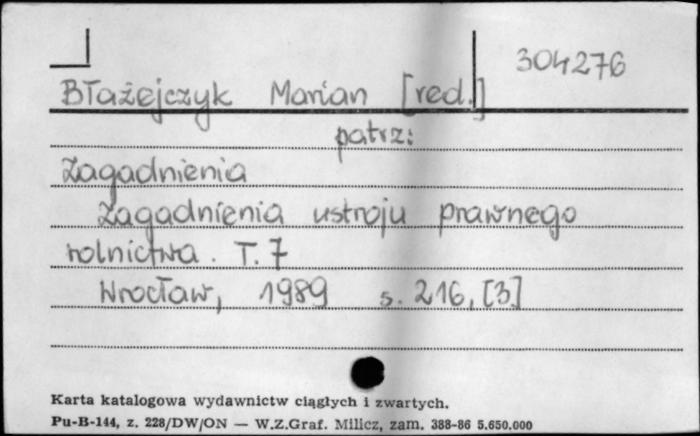 304276
Błażejczyk Marian [red.]
patrz:
Zagadnienia
Zagadnienia ustroju prawnego
rolnictwa. T. 7
Wrocław, 1989 s. 216, [3]
Karta katalogowa wydawnictw ciągłych i zwartych.
Pu-B-144, z. 228/DW/ON — W.Z.Graf. Milicz, zam. 388-86 5.650.000